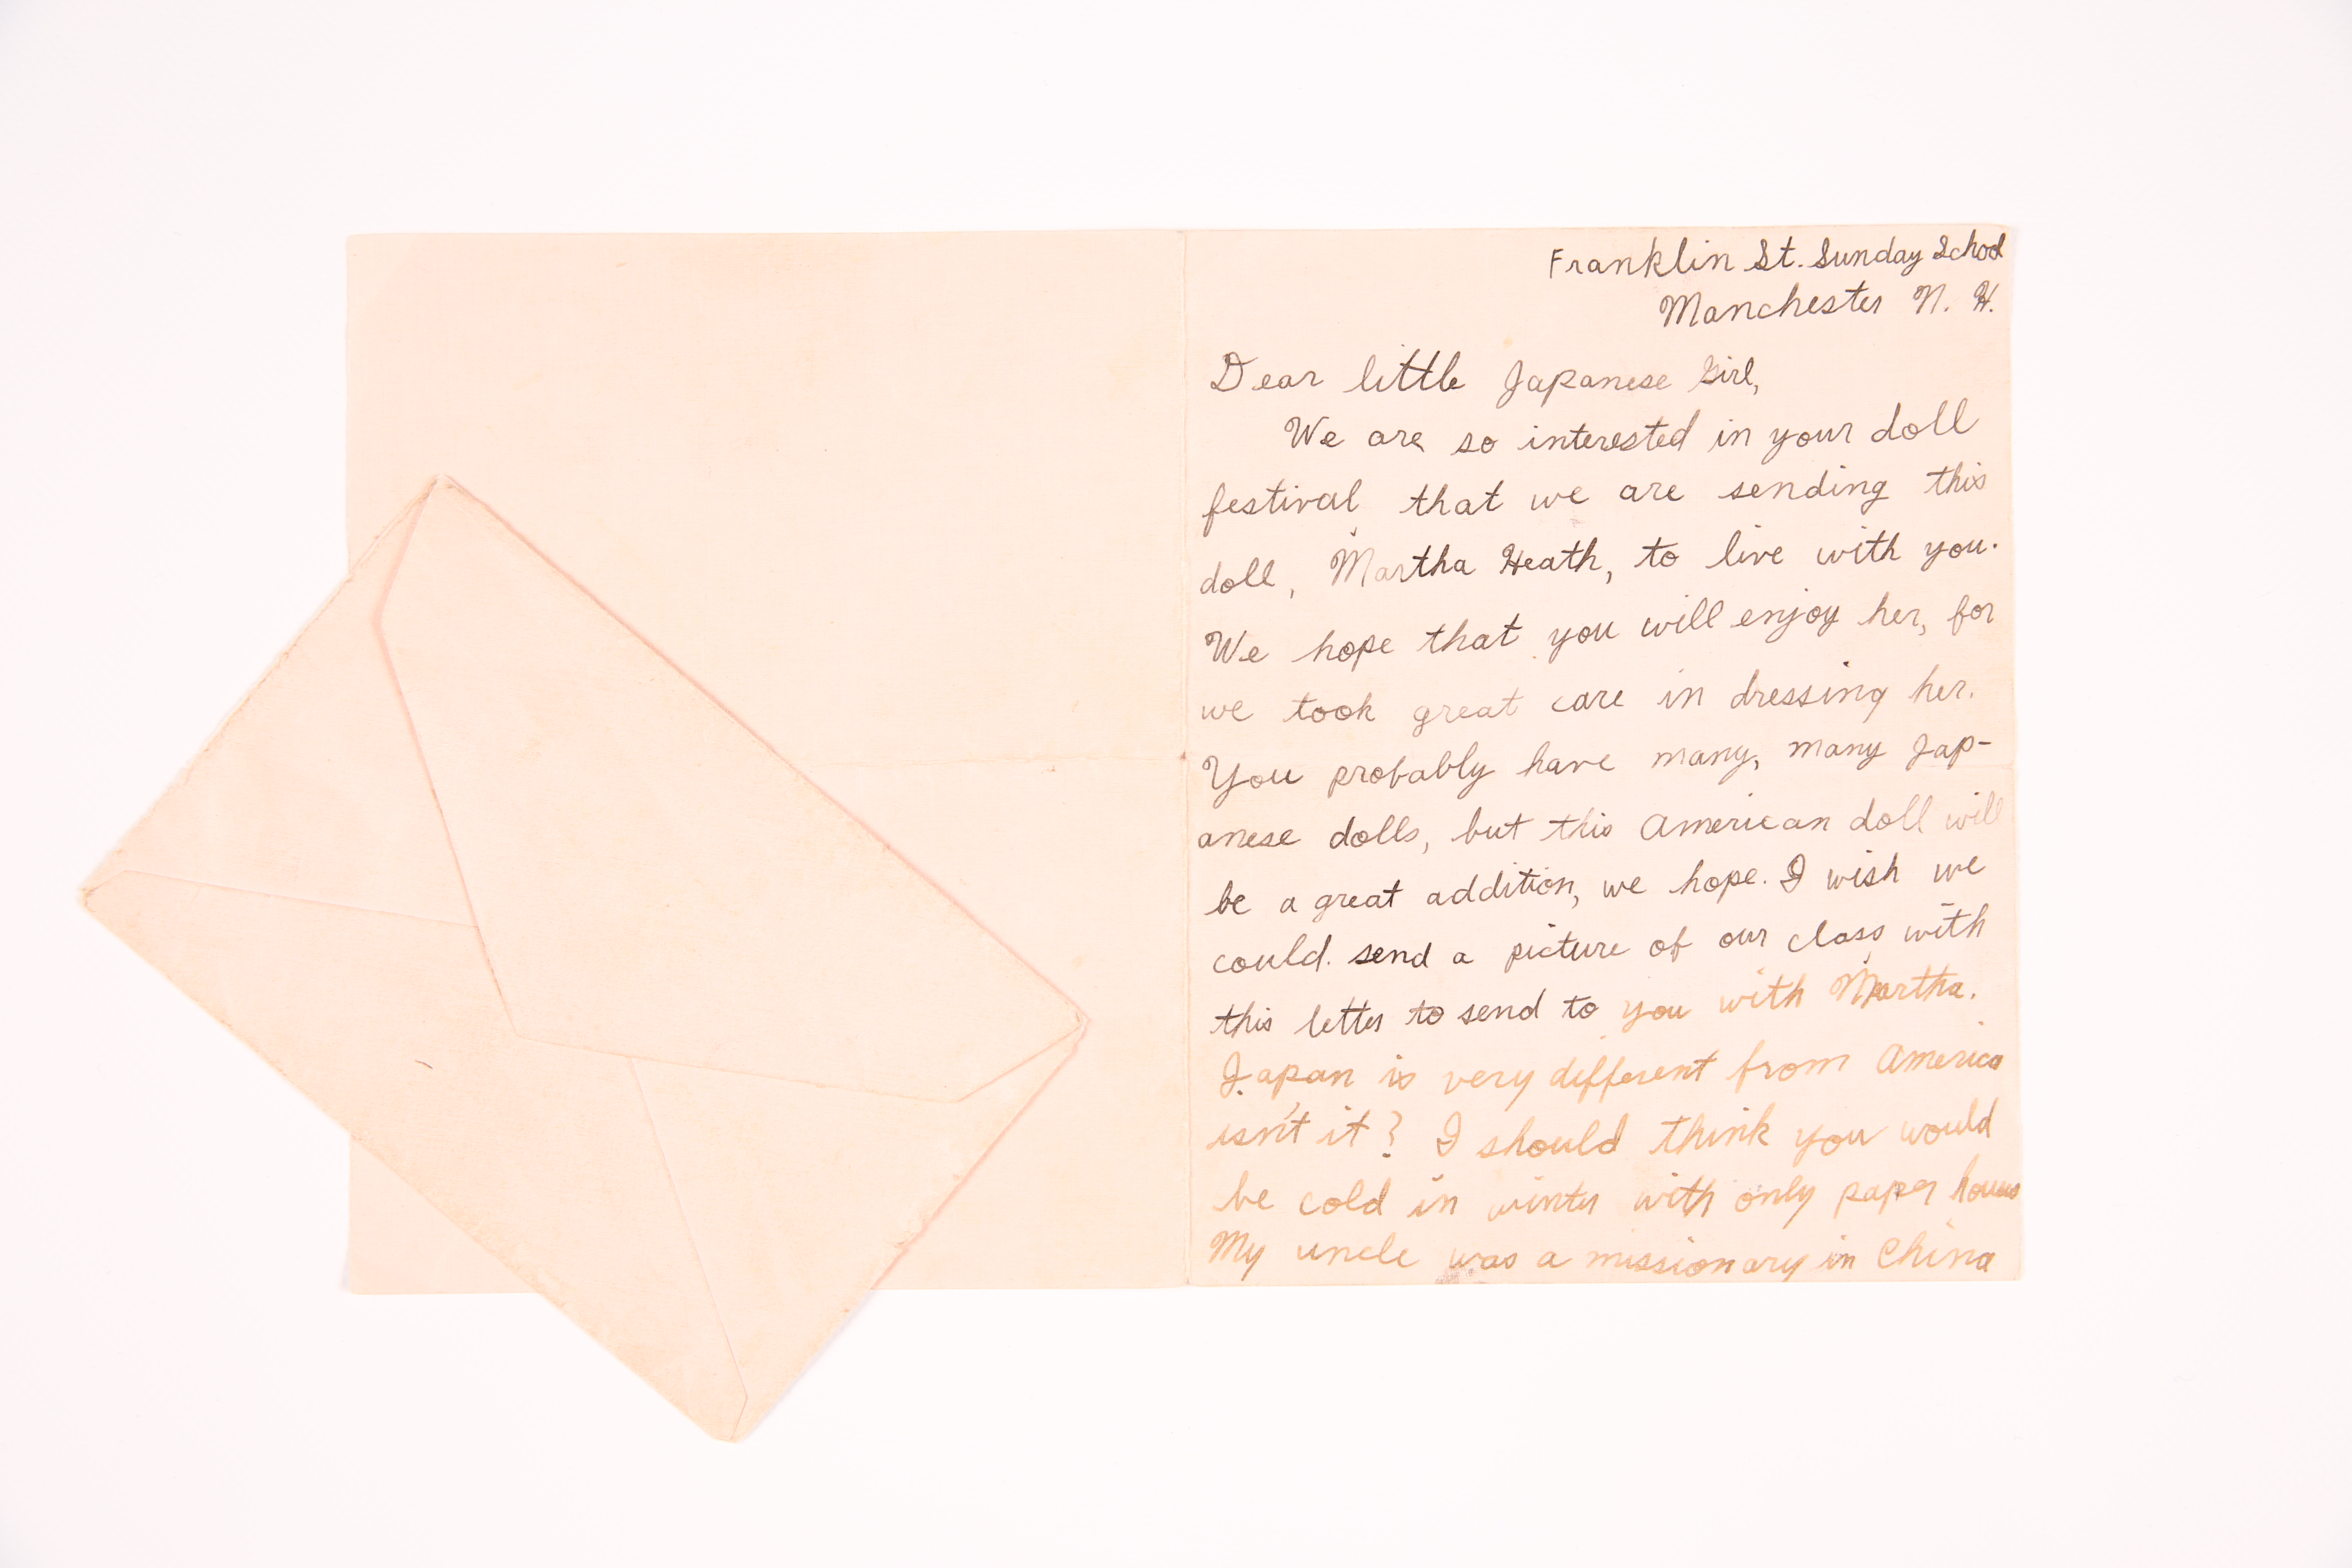 Franklin St. Sunday School
Manchester N. H.
Dear little Japanese Girl,
We are so interested in your doll
festival that we are sending this
doll, Martha Heath, to live with you.
We hope that you will enjoy her, for
we took great care in dressing her.
You probably have many, many Jap-
anese dolls, but this American doll will
be a great addition, we hope. I wish we
could send a picture of our class with
this letter to send to you with Martha.
Japan is very different from America
isn't it? I should think you would
be cold in winter with only paper houses
My uncle was a missionary in China